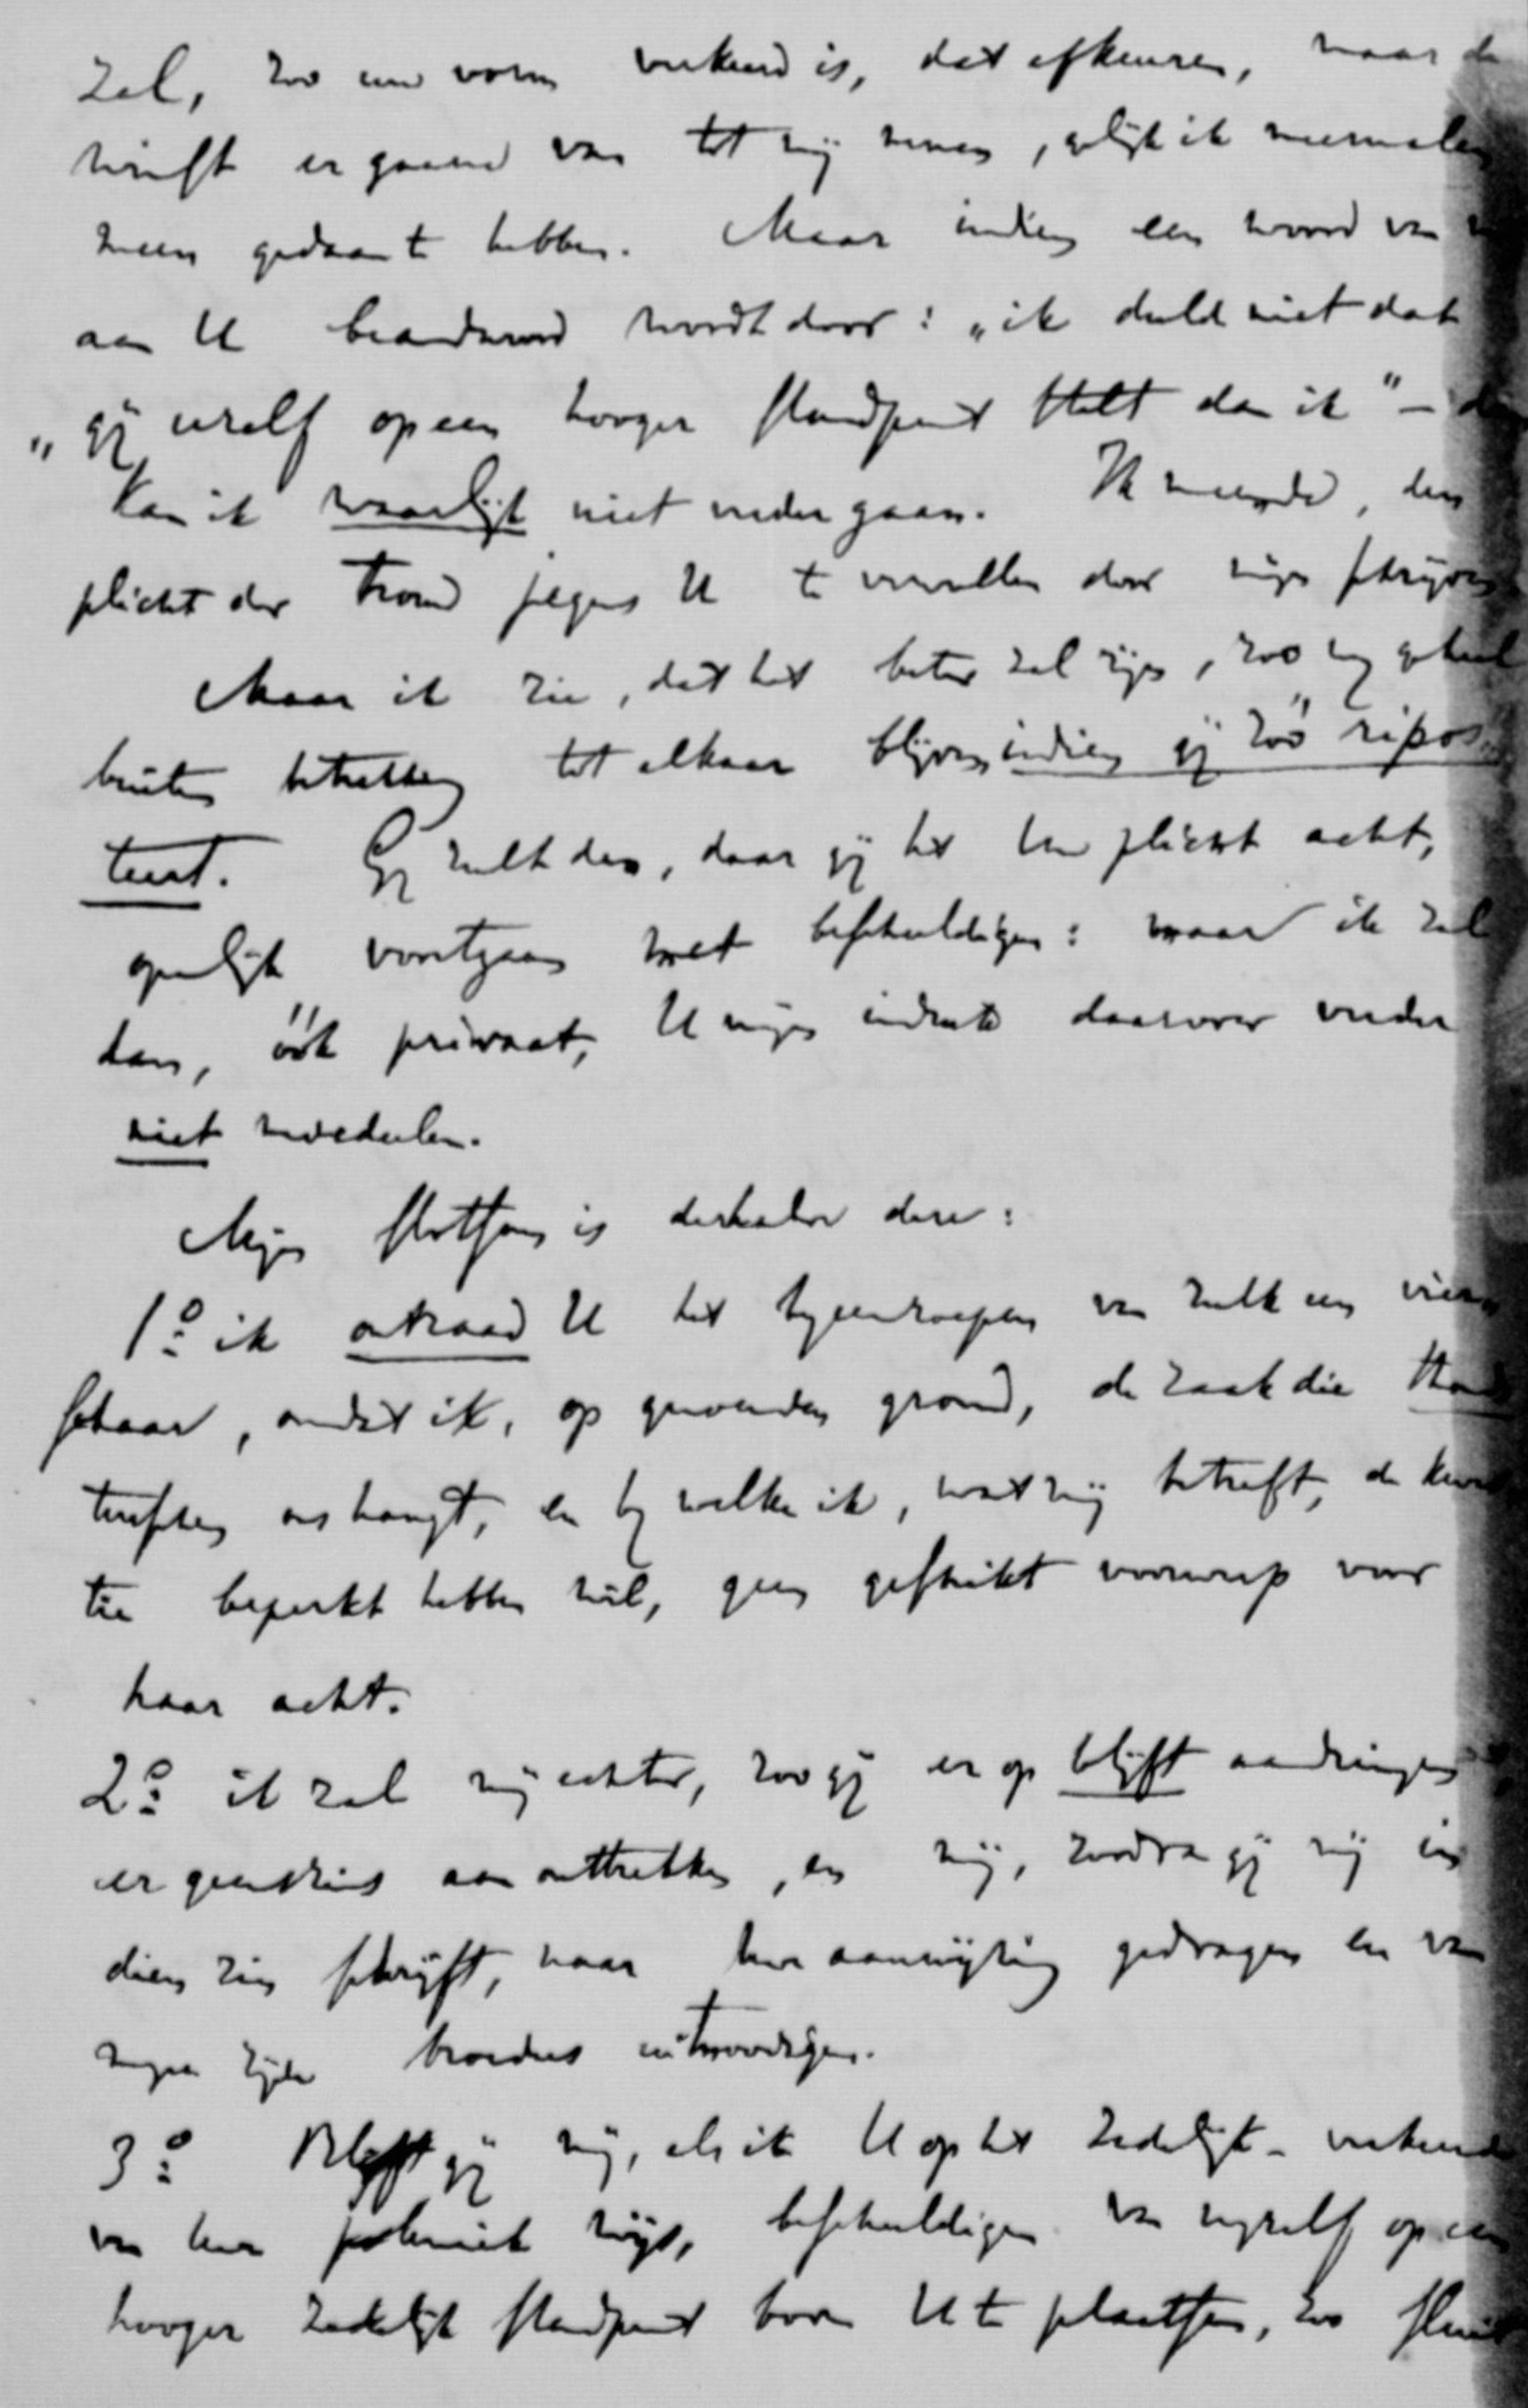 zal, zoo uw vorm verkeerd is, dat afkeuren, maar de
drift er gaarne van tot mij nemen, gelijk ik meermalen
meen gedaan te hebben. Maar indien een woord van
aan U beantwoord wordt door: „ik duld niet dat
„gij uzelf op een hooger standpunt stelt dan ik" —
kan ik waarlijk niet verder gaan. Ik meende, den
plicht der trouw jegens U te vervullen door mijn schrijven
Maar ik zie, dat het beter zal zijn, zoo wij geheel
buiten betrekking tot elkaar blijven, indien gij zóó ripos-
teert. Gij zult dan, daar gij het Uw plicht acht,
openlijk voortgaan met beschuldigen: maar ik zal
dan, óók privaat, U mijn indruk daarover verder
niet mededeelen.
Mijn slotsom is derhalve deze:
1º ik ontraad U het bijeenroepen van zulk een vier-
schaar, omdat ik, op gronden, de zaak die
tusschen ons hangt, en bij welke ik, wat mij betreft, de
tie beperkt hebben wil, geen geschikt voorwerp voor
haar acht.
2º ik zal mij echter, zoo gij er op blijft aandringen
er geenszins aan onttrekken, en mij, zoodra gij mij in
dien zin schrijft, naar Uw aanwijzing gedragen en van
mijne zijde broeders uitnoodigen.
3º Blijft gij mij, als ik U op het zedelijk-verkeerde
van Uw polemiek wijs, beschuldigen van mijzelf op een
hooger zedelijk standpunt boven U te plaatsen, zoo